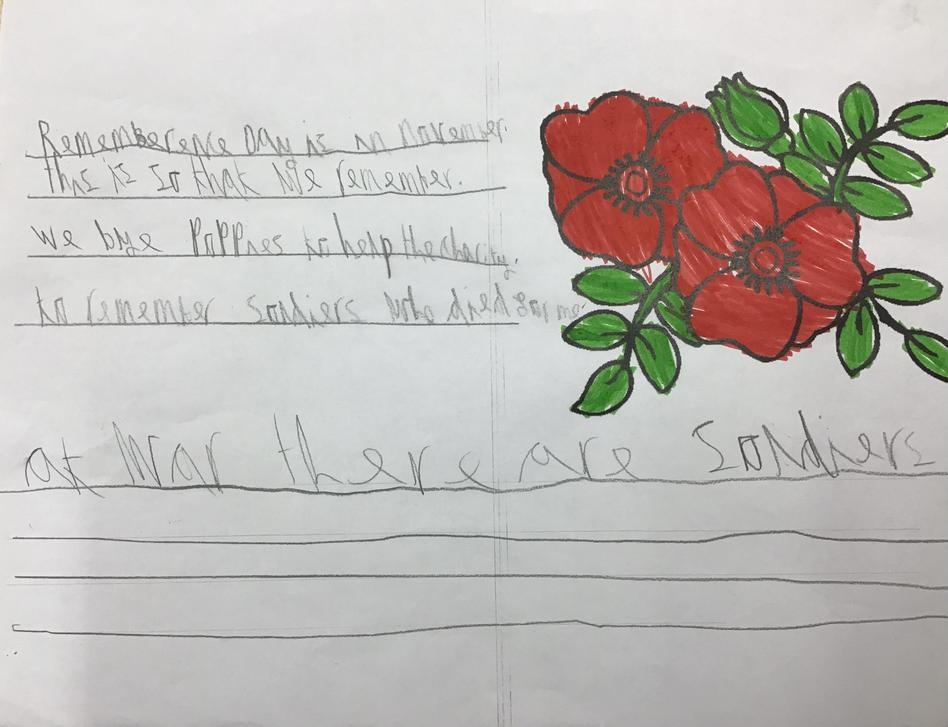 Rememberence Day is in November.
this is so that we remember.
we bye Poppies to help the charity.
to remember Soldiers who died for me
at War there are Soldiers